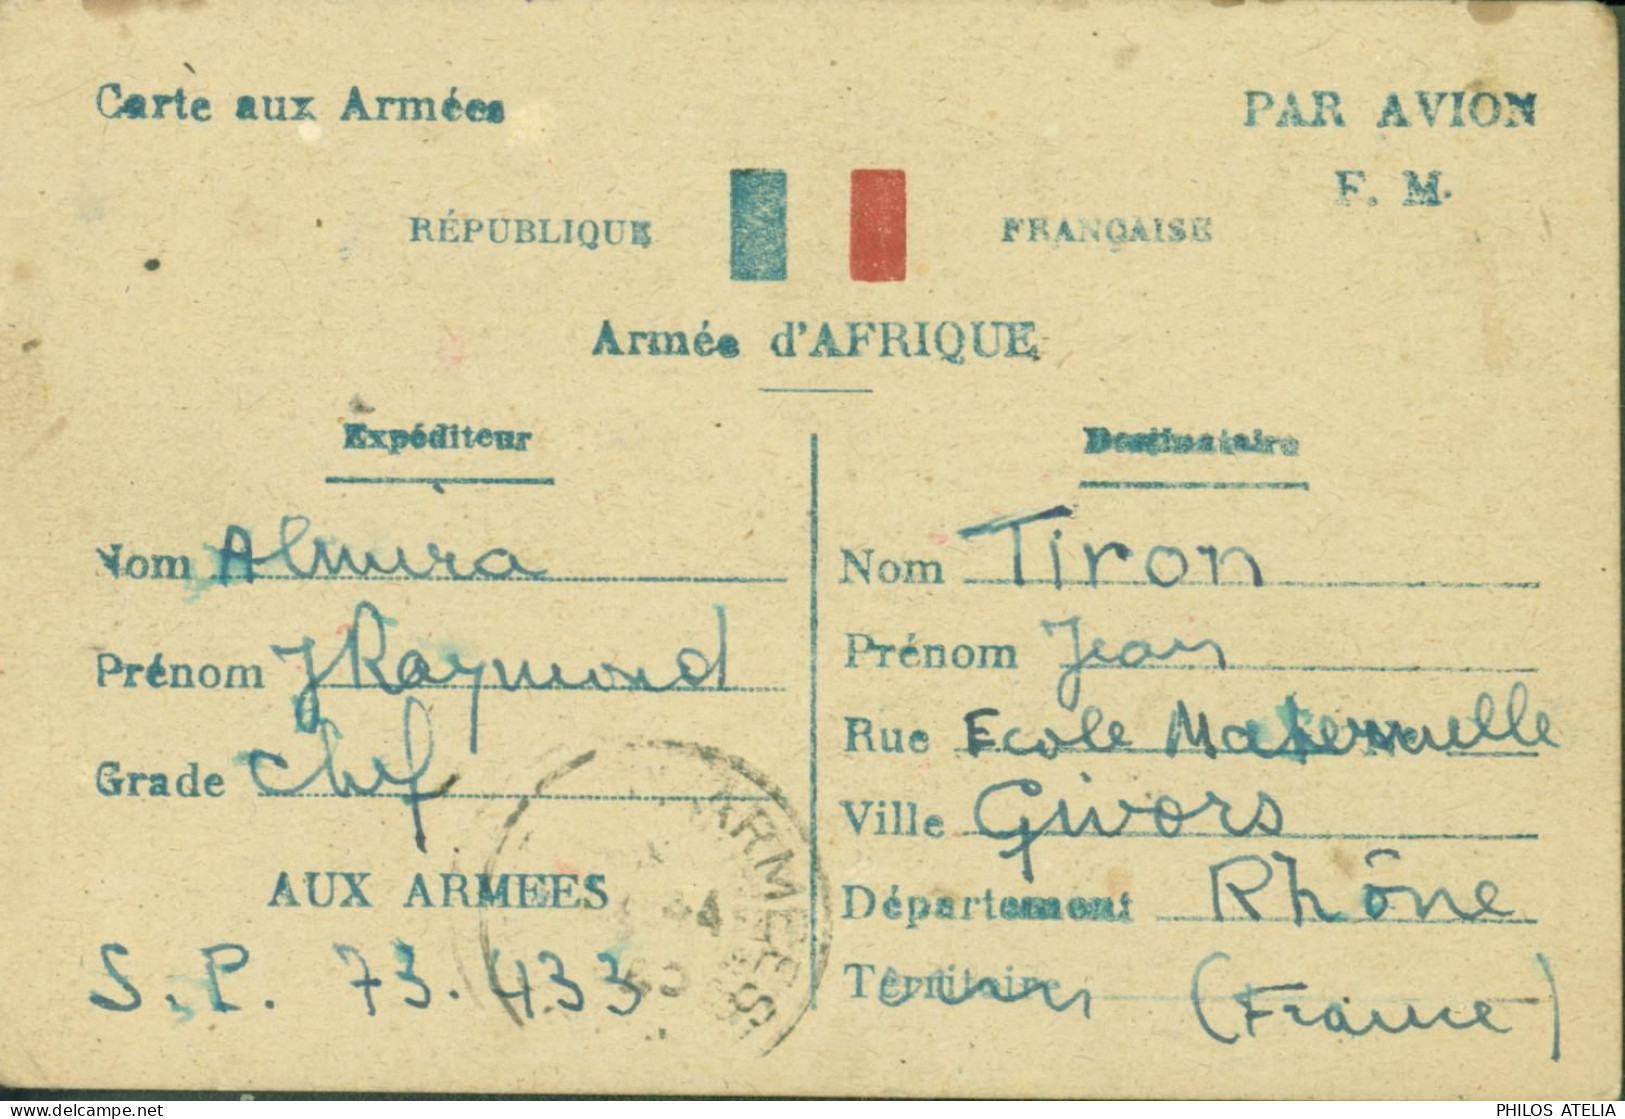 Carte aux Armées
PAR AVION
F. M.
RÉPUBLIQUE FRANÇAISE
Armée d'AFRIQUE
Expéditeur
Nom Almura
Prénom J Raymond
Grade Chef
AUX ARMEES
S. P. 73.433
Destinataire
Nom Tiron
Prénom Jean
Rue Ecole Maternelle
Ville Givors
Département Rhône
Territoire (France)
ARMEES
44
PHILOS ATELIA